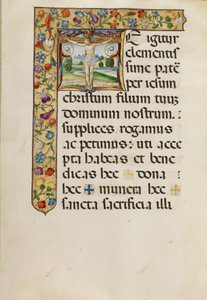 Te igitur
clementis
sime pater
per iesum
christum filium tuuz
dominum nostrum.
supplices rogamus
ac petimus: uti acce
pta habeas et bene
dicas hec ✠ dona
hec ✠ munera hec ✠
sancta sacrificia illi